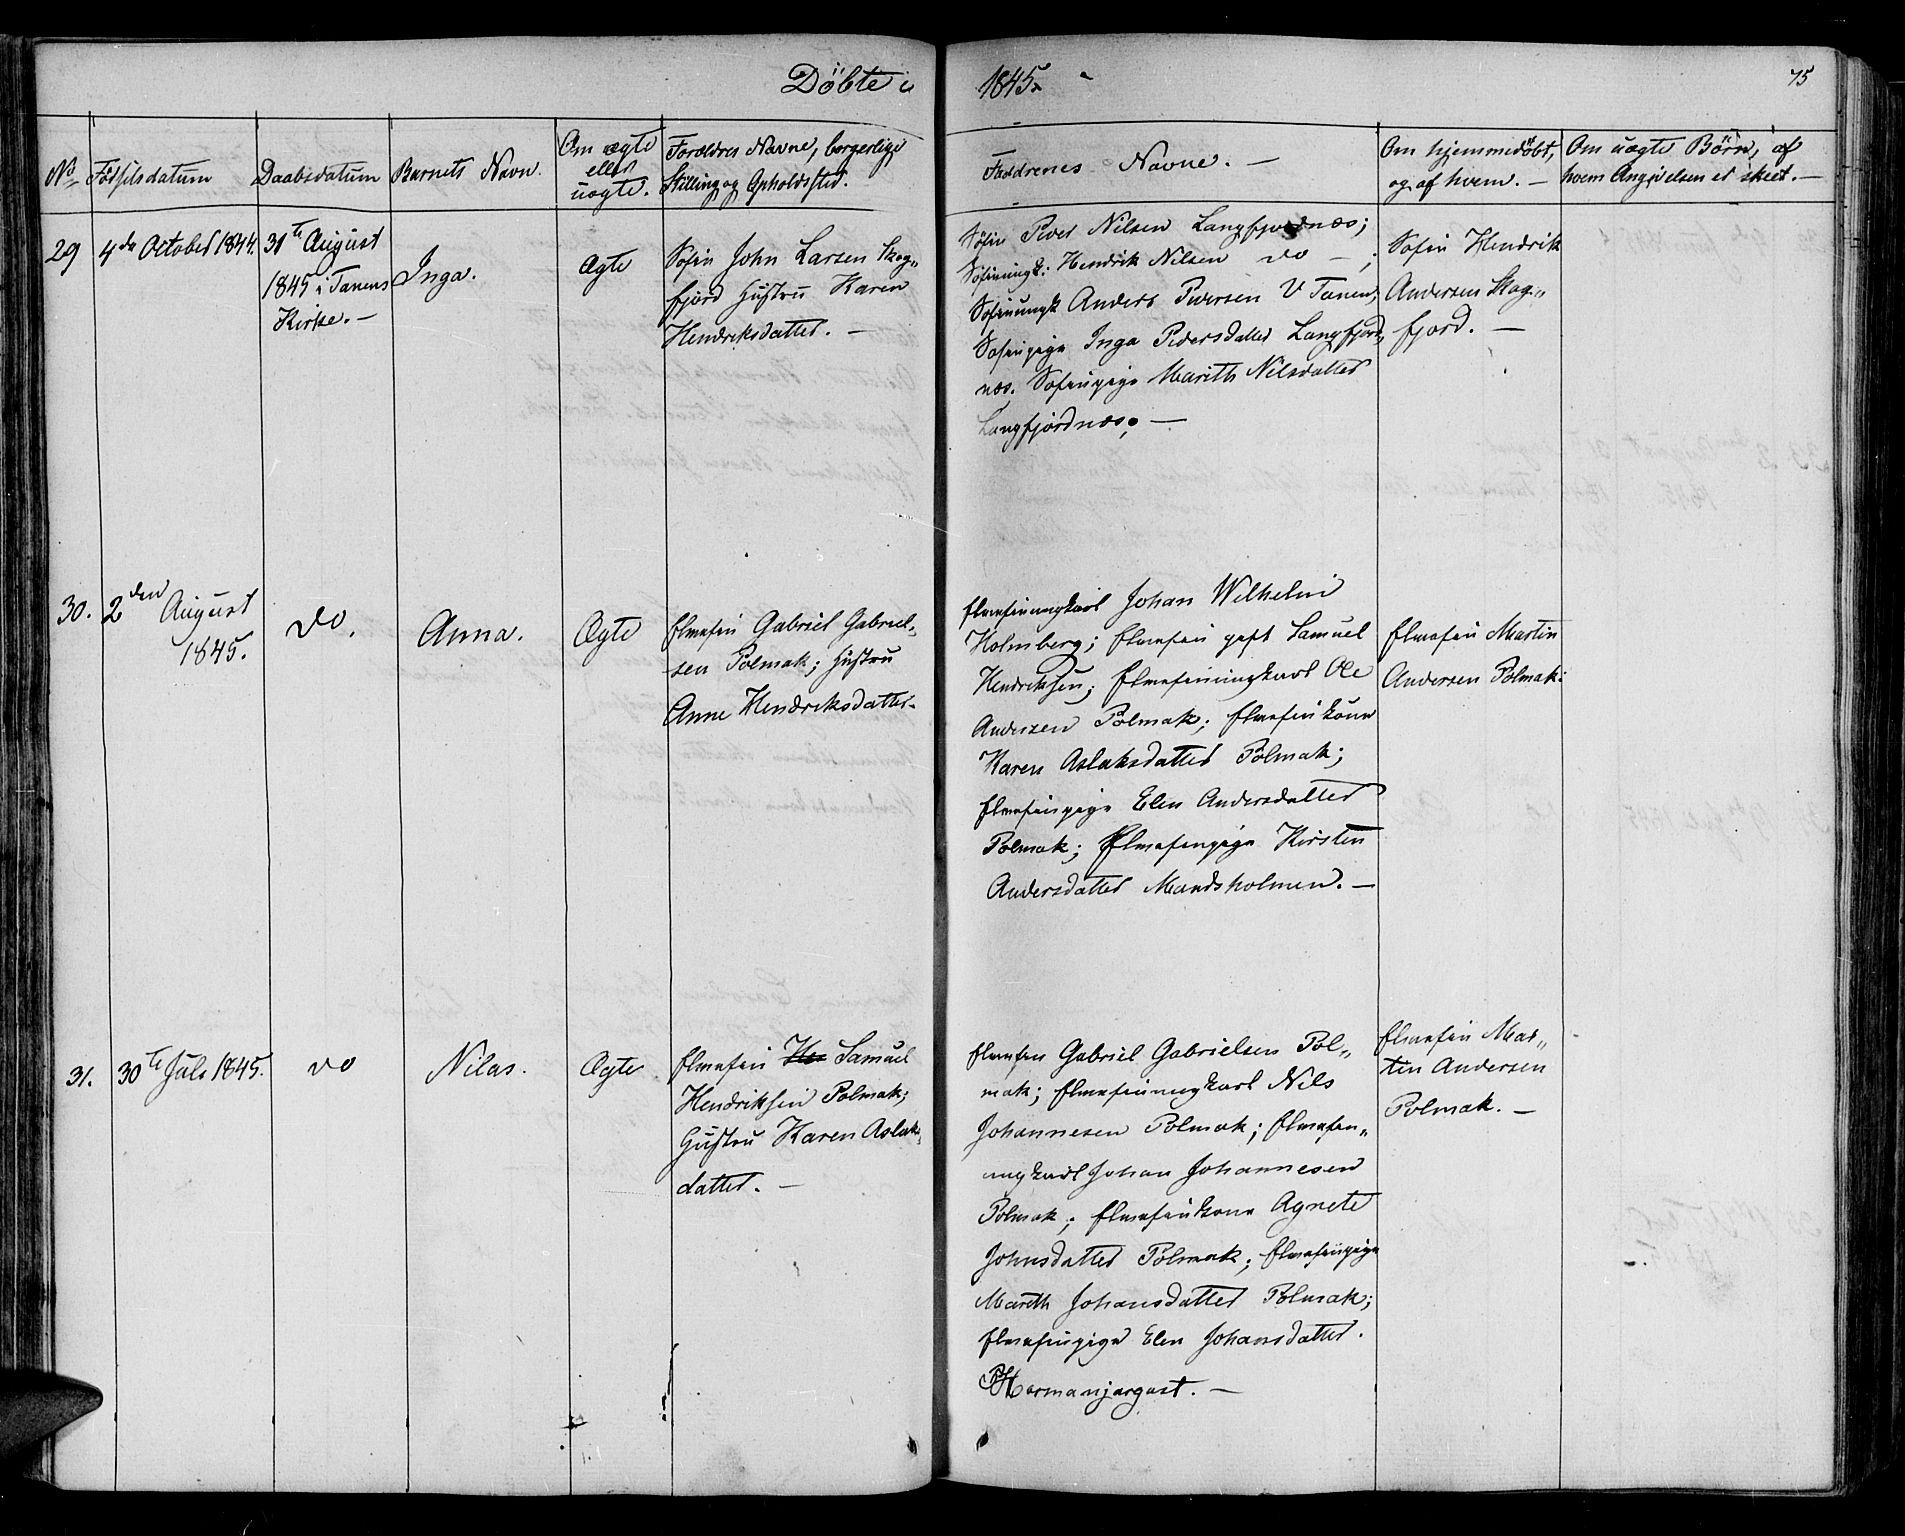 Döbte i 1845.
75
No
Födselsdatum
Daabsdatum
Barnets Navn.
Om ægte
eller
uægte.
Forældres Navne, borgerlige
Stilling og Opholdssted.
Faddrenes Navne. —
Om hjemmedöbt,
og af hvem. —
Om uægte Börn, af
hvem Angivelsen er skeet. —
29
4de October 1844.
31te August
1845 i Tanens
Kirke. —
Inga.
Ægte
Söfin John Larsen Skog„
fjord Hustru Karen
Hendriksdatter. —
Söfin Peder Nilsen Langfjordnæs;
Söfinungk: Hendrik Nilsen do — ;
Söfinungk Anders Pedersen V Tanen;
Söfinpige Inga Pedersdatter Langfjord„
næs. Söfinpige Marith Nilsdatter
Langfjordnæs; —
Söfin Hendrik
Andersen Skog„
fjord. —
30.
2den August
1845.
do.
Anna.
Ægte
Elvefin Gabriel Gabriel„
sen Polmak; Hustru
Anne Hendriksdatter.
Elvefinungkarl Johan Wilhelm
Holmberg; Elvefin gift Samuel
Hendriksen; Elvefinungkarl Ole
Andersen Polmak; Elvefinkone
Karen Aslaksdatter Polmak;
Elvefinpige Elen Andersdatter
Polmak; Elvefinpige Kirsten
Andersdatter Mandsholmen. —
Elvefin Martin
Andersen Polmak:
31.
30te Juli 1845.
do
Nilas.
Ægte
Elvefin Samuel
Hendriksen Polmak;
Hustru Karen Aslak„
datter. —
Elvefin Gabriel Gabrielsen Pol„
mak; Elvefinungkarl Nils
Johannesen Polmak; Elvefin„
ungkarl Johan Johannesen
Polmak; Elvefinkone Agnete
Johnsdatter Polmak; Elvefinpige
Marith Johansdatter Polmak;
Elvefinpige Elen Johansdatter.
Harmanjargast. —
Elvefin Mar„
tin Andersen
Polmak. —